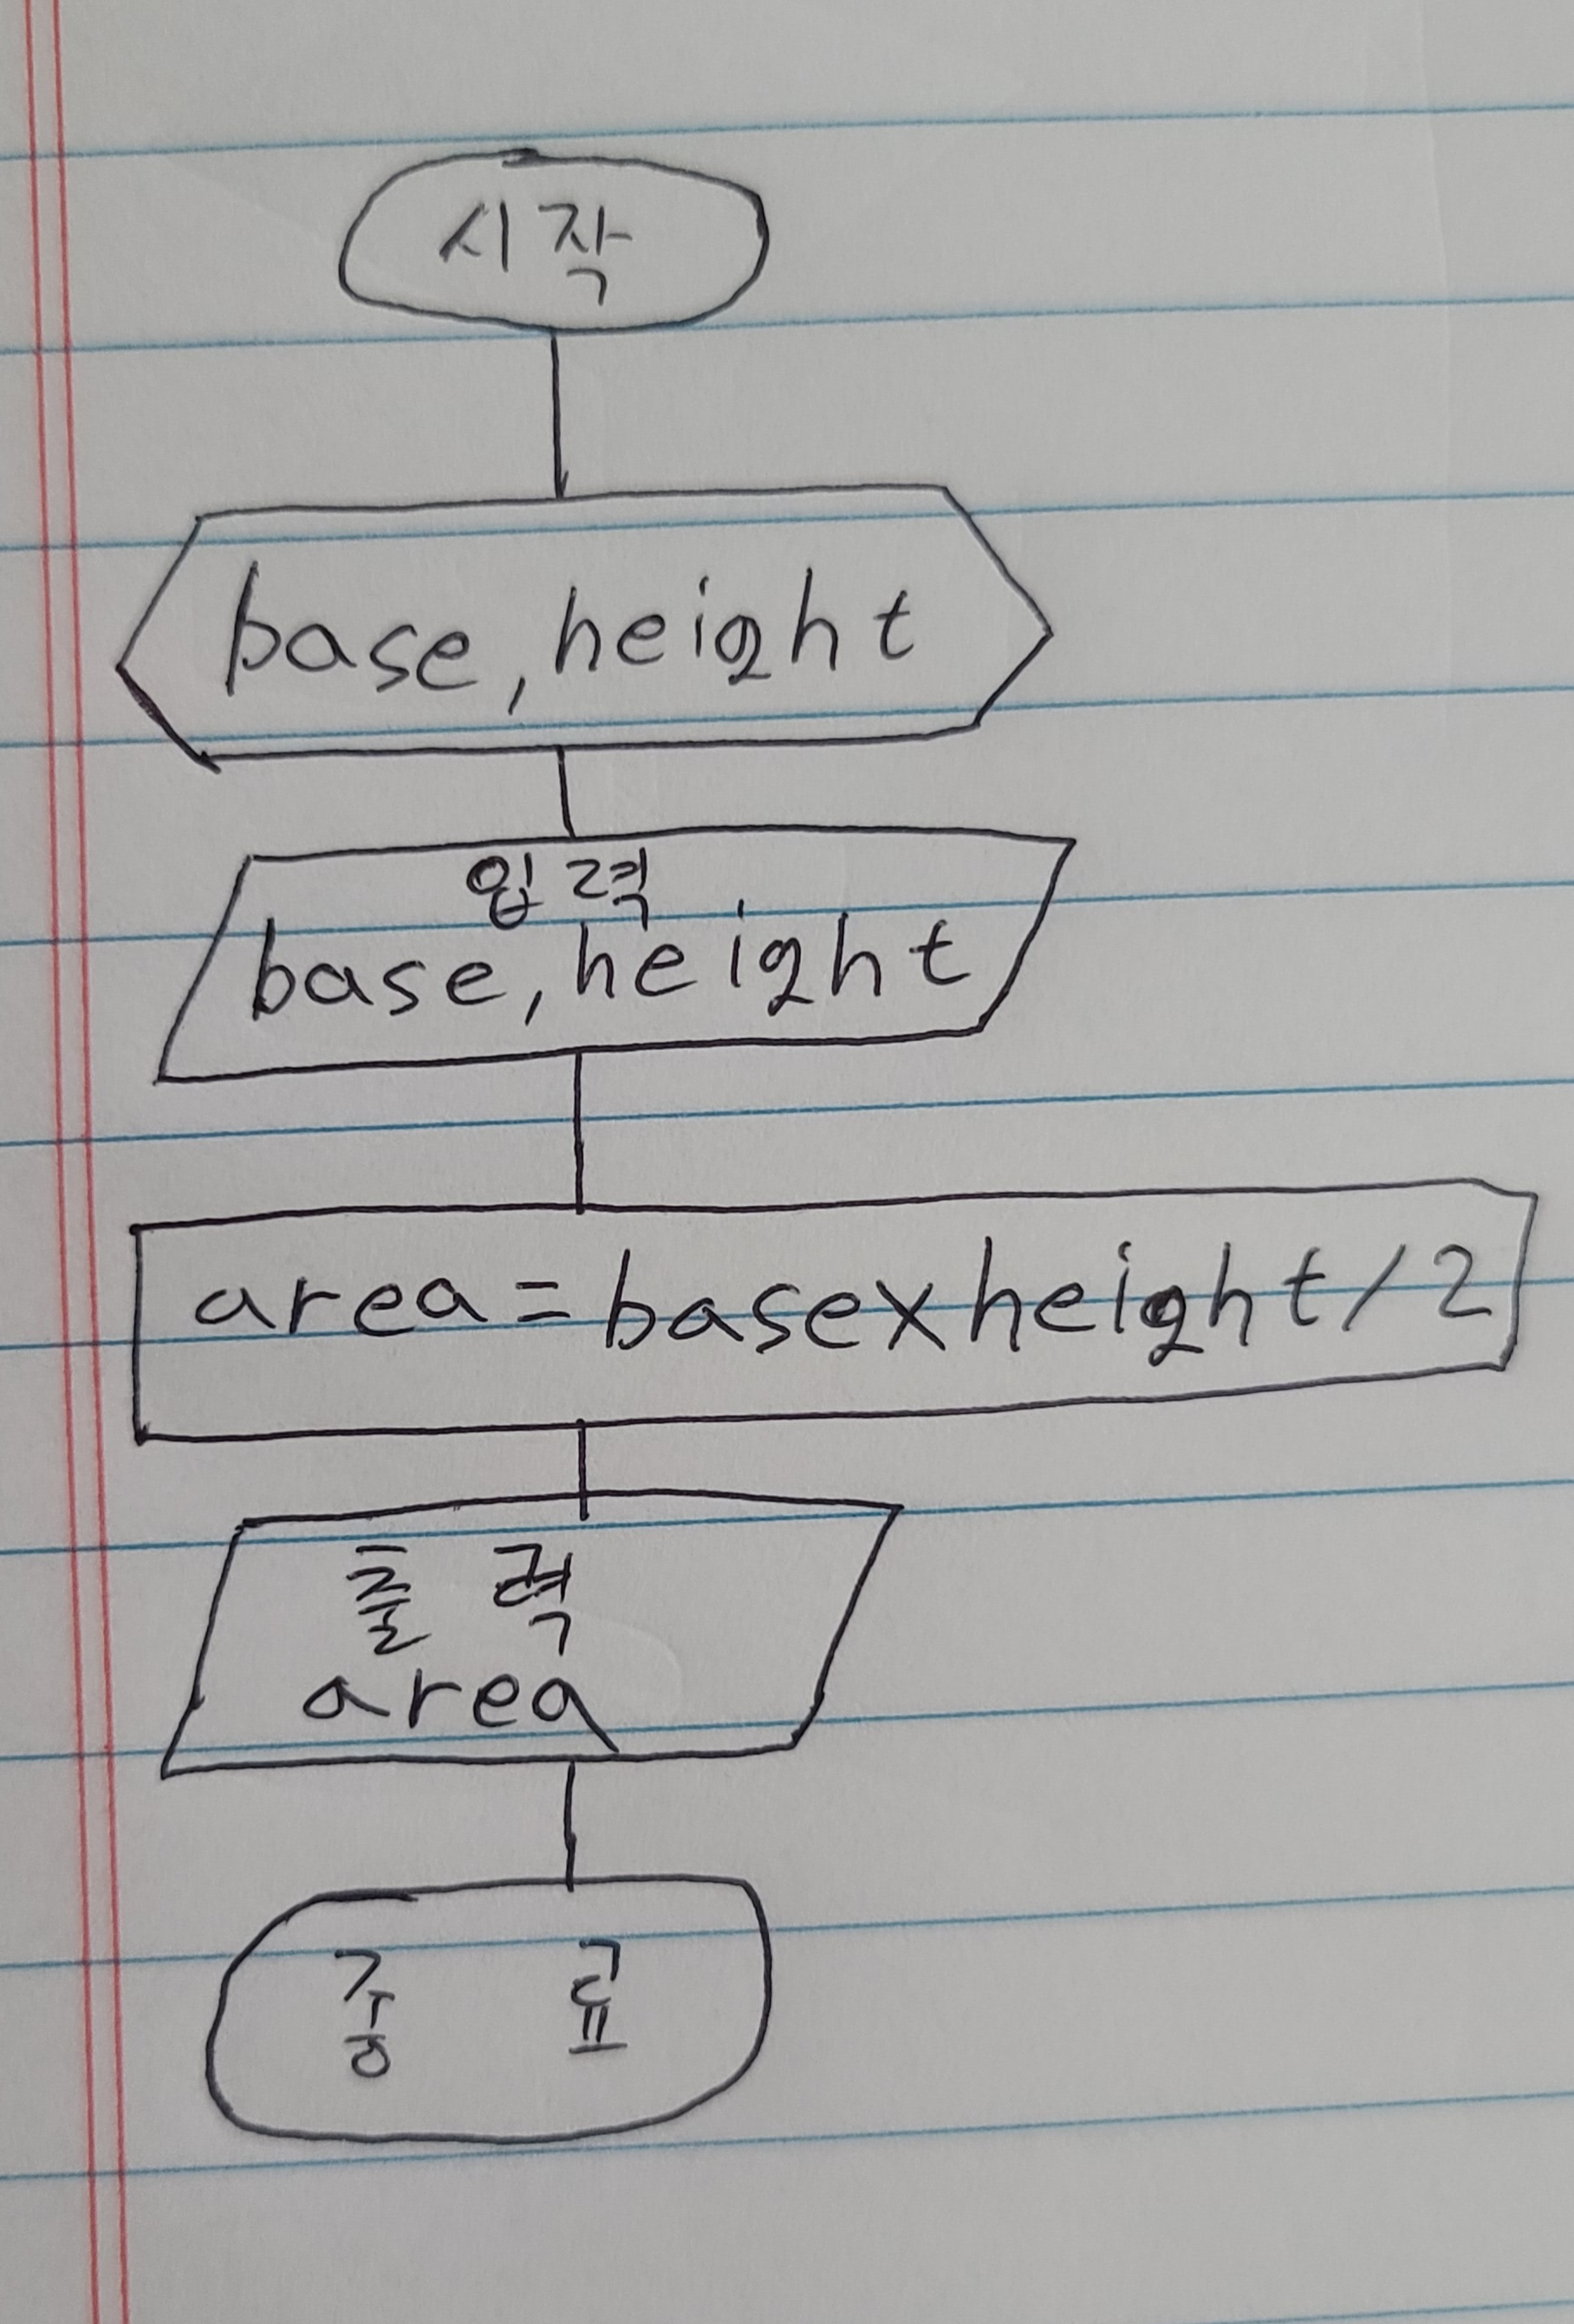 시작
base, height
입력
base, height
area = base x height / 2
출력
area
종료